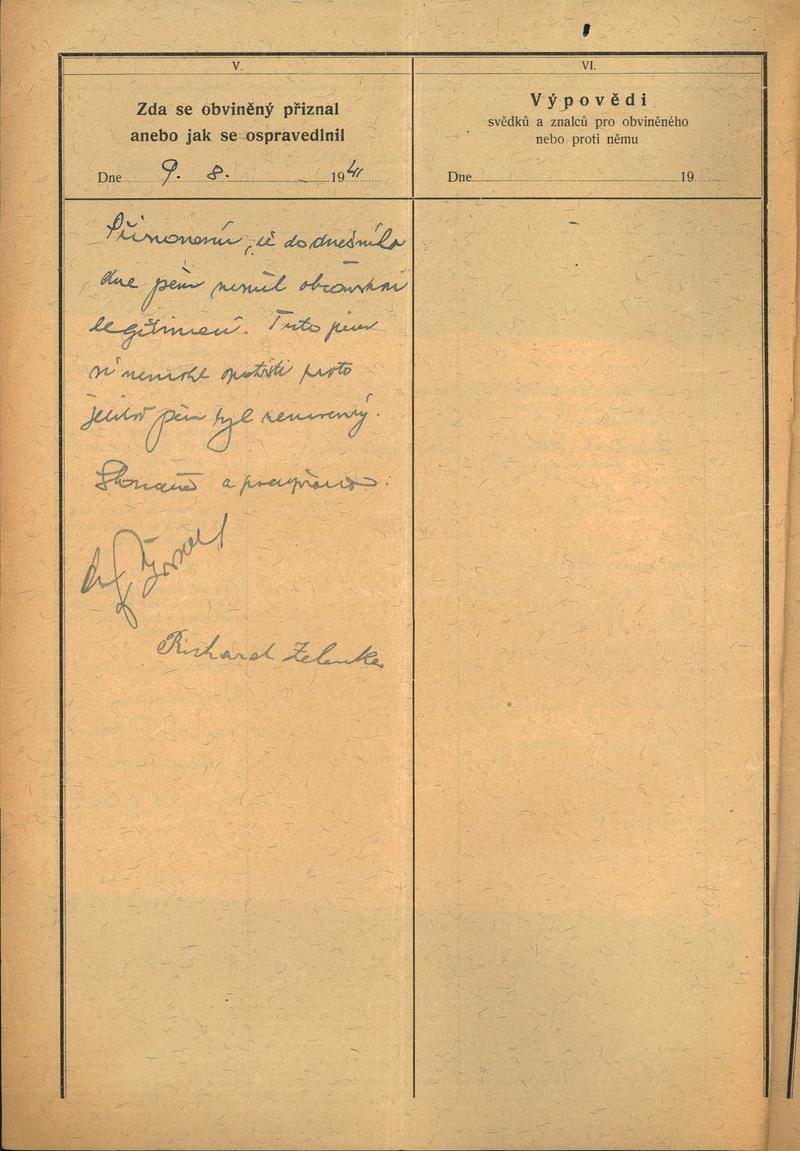 V.
Zda se obviněný přiznal
anebo jak se ospravedlnil
Dne 9. 8. 1941
, že do dnešního
dne jsem neměl občanskou
legitimaci. Tuto jsem
si nemohl opatřiti proto
jelikož jsem byl nemocný.
a podepsáno.
Richard Zelenka
VI.
Výpovědi
svědků a znalců pro obviněného
nebo proti němu
Dne 19